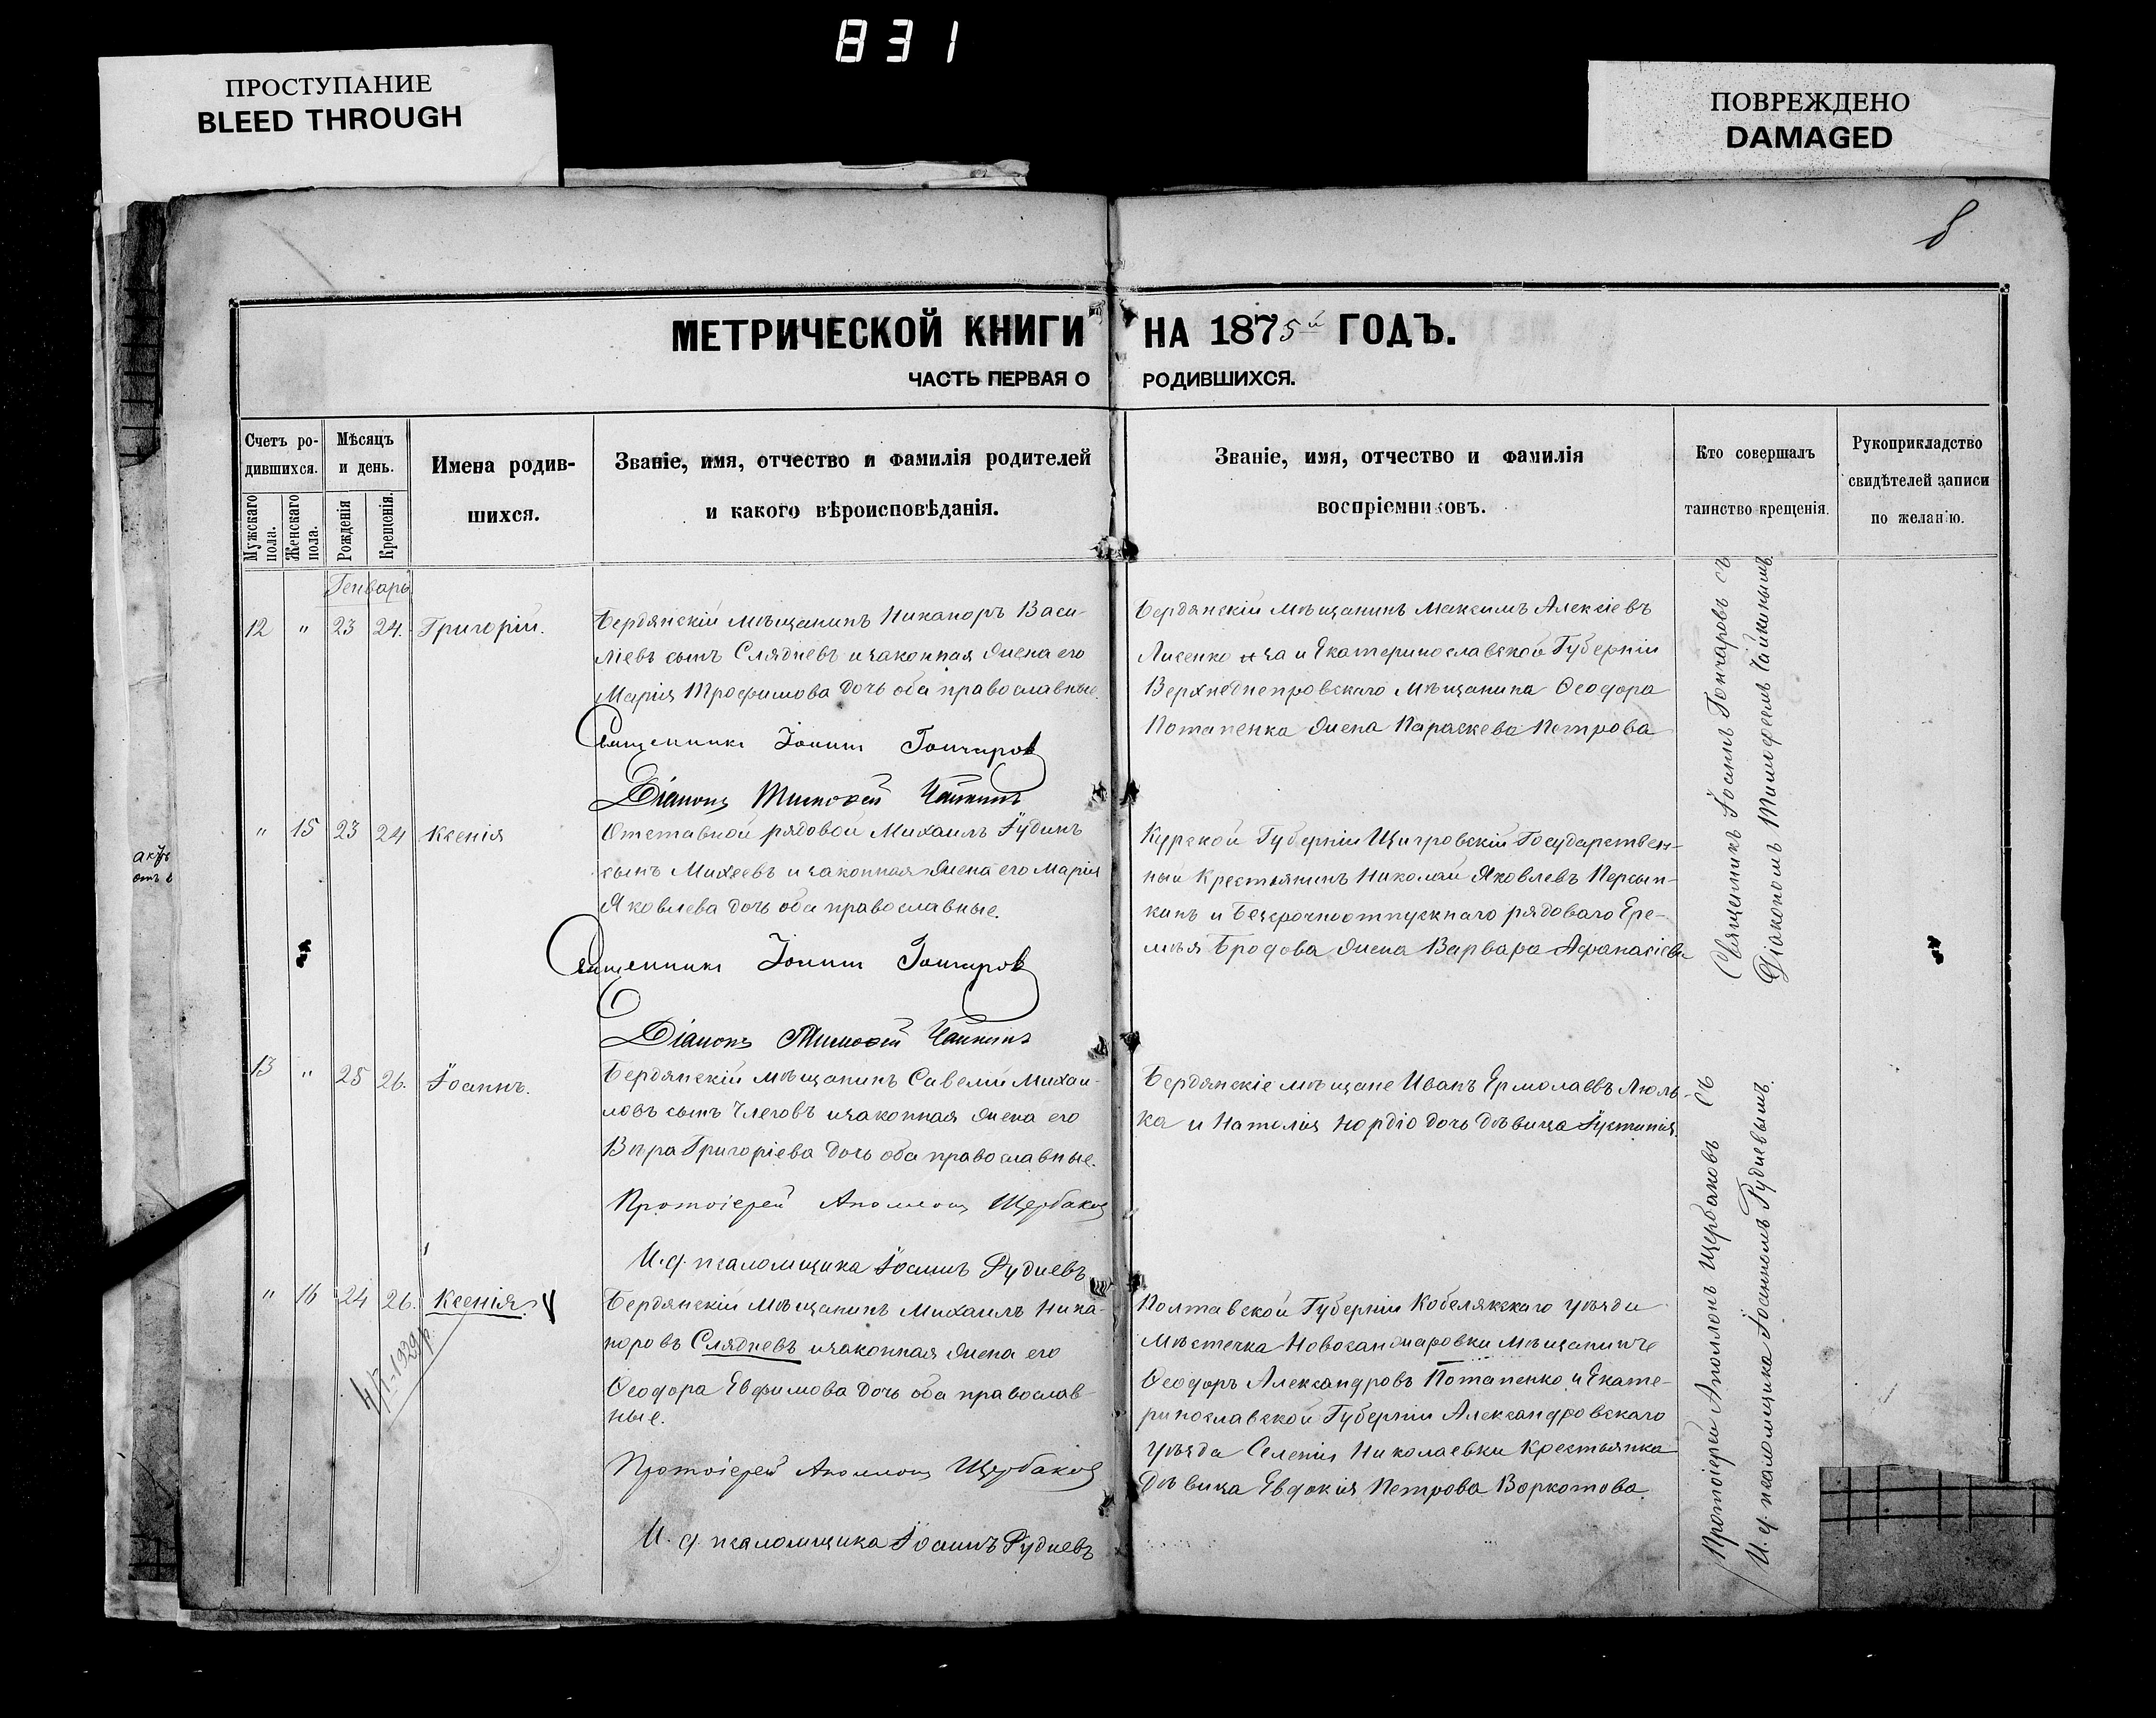 831
ПРОСТУПАНИЕ
BLEED THROUGH
ПОВРЕЖДЕНО
DAMAGED
8
МЕТРИЧЕСКОЙ КНИГИ НА 1875й ГОДЪ.
ЧАСТЬ ПЕРВАЯ О РОДИВШИХСЯ.
Счетъ ро-
дившихся.
Мужскаго пола.
Женскаго пола.
Мѣсяцъ
и день.
Рожденія
Крещенія.
Имена родив-
шихся.
Званіе, имя, отчество и фамилія родителей
и какого вѣроисповѣданія.
Званіе, имя, отчество и фамилія
воспріемниковъ.
Кто совершалъ
таинство крещенія.
Рукоприкладство
свидѣтелей записи
по желанію.
Генварь
12 " 23 24. Григорій.
Бердянскій мѣщанинъ Никаноръ Васи-
ліевъ сынъ Слядневъ и законная жена его
Марія Трофимова дочь оба православные.
Священникъ Іоаннъ Гончаров
Діаконъ Тимофей Чайкинъ
Бердянскій мѣщанинъ Максимъ Алексіевъ
Лисенко и Екатеринославской Губерніи
Верхнеднепровскаго мѣщанина Ѳеодора
Потапенка жена Параскева Петрова
Священникъ Іоаннъ Гончаровъ съ
Діакономъ Тимофеемъ Чайкинымъ.
" 15 23 24 Ксенія
Отставной рядовой Михаилъ Іудинъ
сынъ Михеевъ и законная жена его Марія
Яковлева дочь оба православные.
Священникъ Іоаннъ Гончаров
Діаконъ Тимофей Чайкинъ
Курской Губерніи Щигровскій Государствен-
ный Крестьянинъ Николай Яковлевъ Персын-
кинъ и Безсрочноотпускнаго рядоваго Ере-
мѣя Бродова жена Варвара Афанасіева
13 " 25 26. Іоаннъ.
Бердянскій мѣщанинъ Савелій Михаи-
ловъ сынъ Члеговъ и законная жена его
Вѣра Григоріева дочь оба православные.
Протоіерей Аполлонъ Щербаковъ
И. д. псаломщика Іоаннъ Рудневъ
Бердянскіе мѣщане Иванъ Ермолаевъ Люль-
ка и Наталія дочь дѣвица Іустинія.
Протоіерей Аполлонъ Щербаковъ съ
И. д. псаломщика Іоанномъ Рудневымъ.
" 16 24 26. Ксенія. V
Бердянскій мѣщанинъ Михаилъ Ника-
норовъ Слядневъ и законная жена его
Ѳеодора Евфимова дочь оба православ-
ные.
Протоіерей Аполлонъ Щербаковъ
И. д. псаломщика Іоаннъ Рудневъ
Полтавской Губерніи Кобелякскаго уѣзда
Мѣстечка Новосанжаровки мѣщанинъ
Ѳеодоръ Александровъ Потапенко и Екате-
ринославской Губерніи Александровскаго
уѣзда Селенія Николаевки Крестьянка
дѣвица Евдокія Петрова Воркотова.